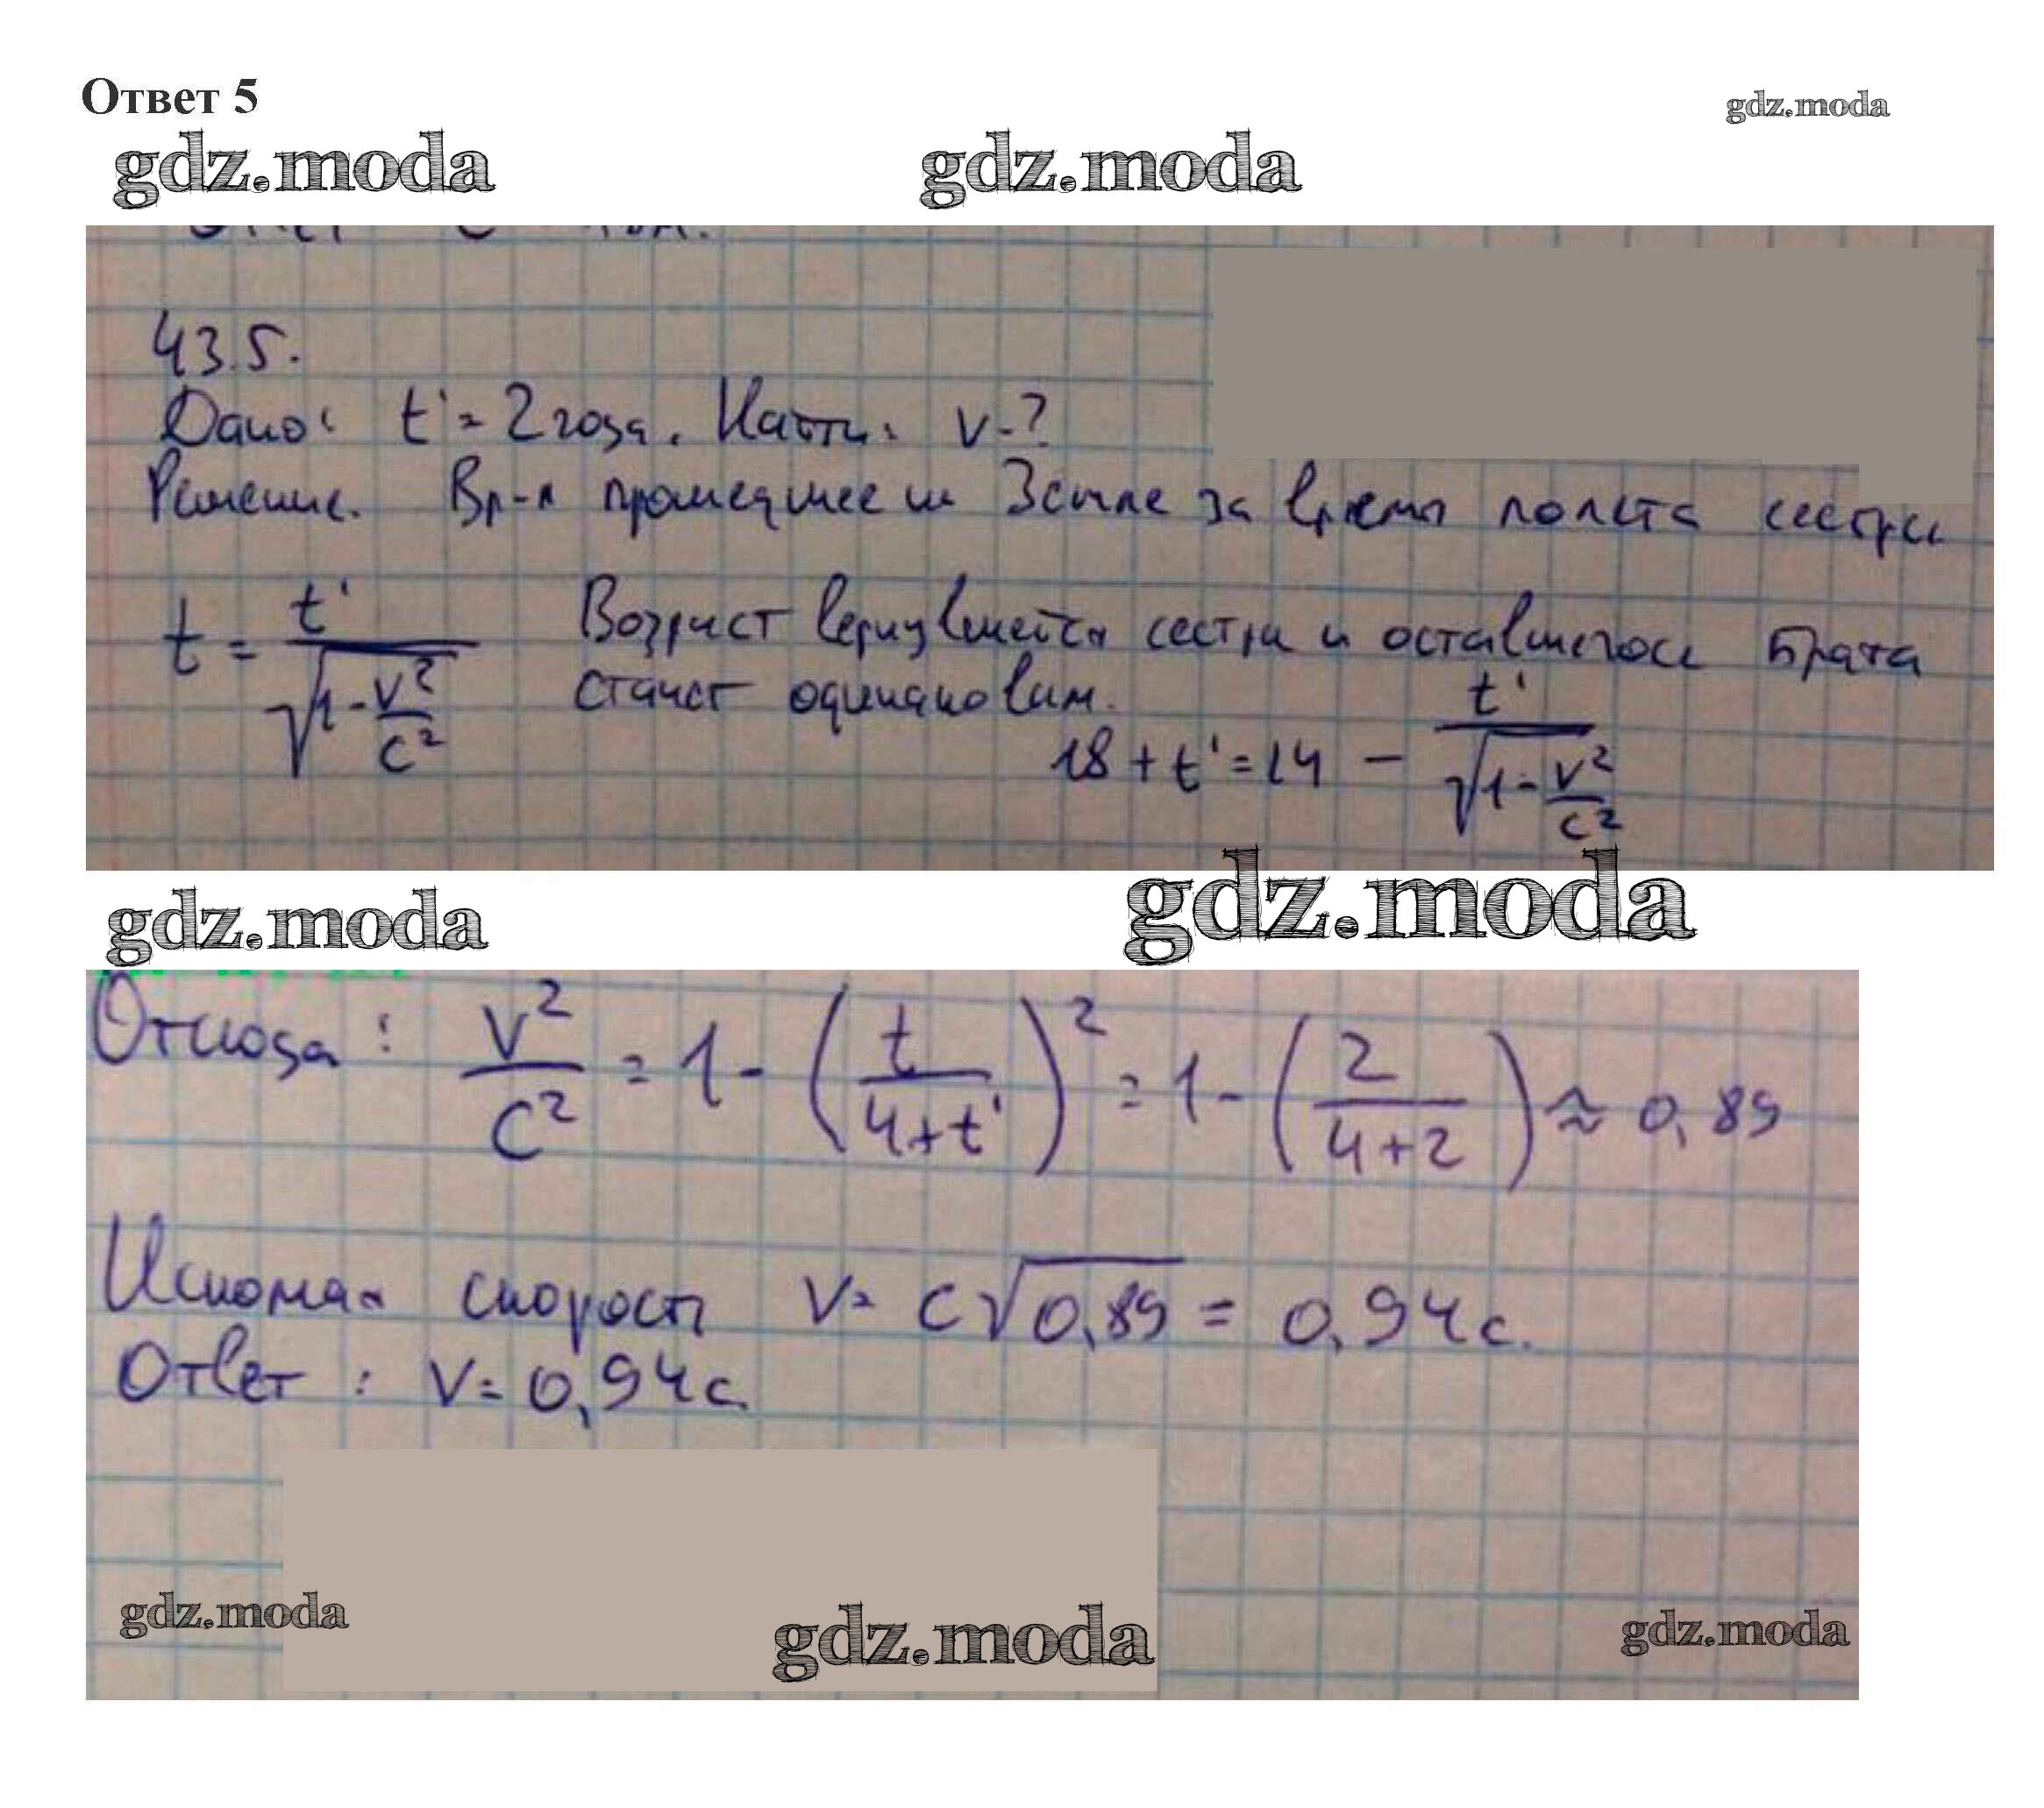 Ответ 5
gdz.moda
gdz.moda gdz.moda
43.5.
Дано: t' = 2 года. Найти: v-?
Решение. Вр-я прошедшее на Земле за время полета сестры
t = t' / √(1 - v²/c²) Возраст вернувшейся сестры и оставшегося брата
станет одинаковым.
18 + t' = 14 - t' / √(1 - v²/c²)
gdz.moda gdz.moda
Отсюда: v²/c² = 1 - (t / (4 + t'))² = 1 - (2 / (4 + 2)) ≈ 0,89
Искомая скорость v = c√0,89 = 0,94c.
Ответ: v = 0,94c.
gdz.moda gdz.moda gdz.moda